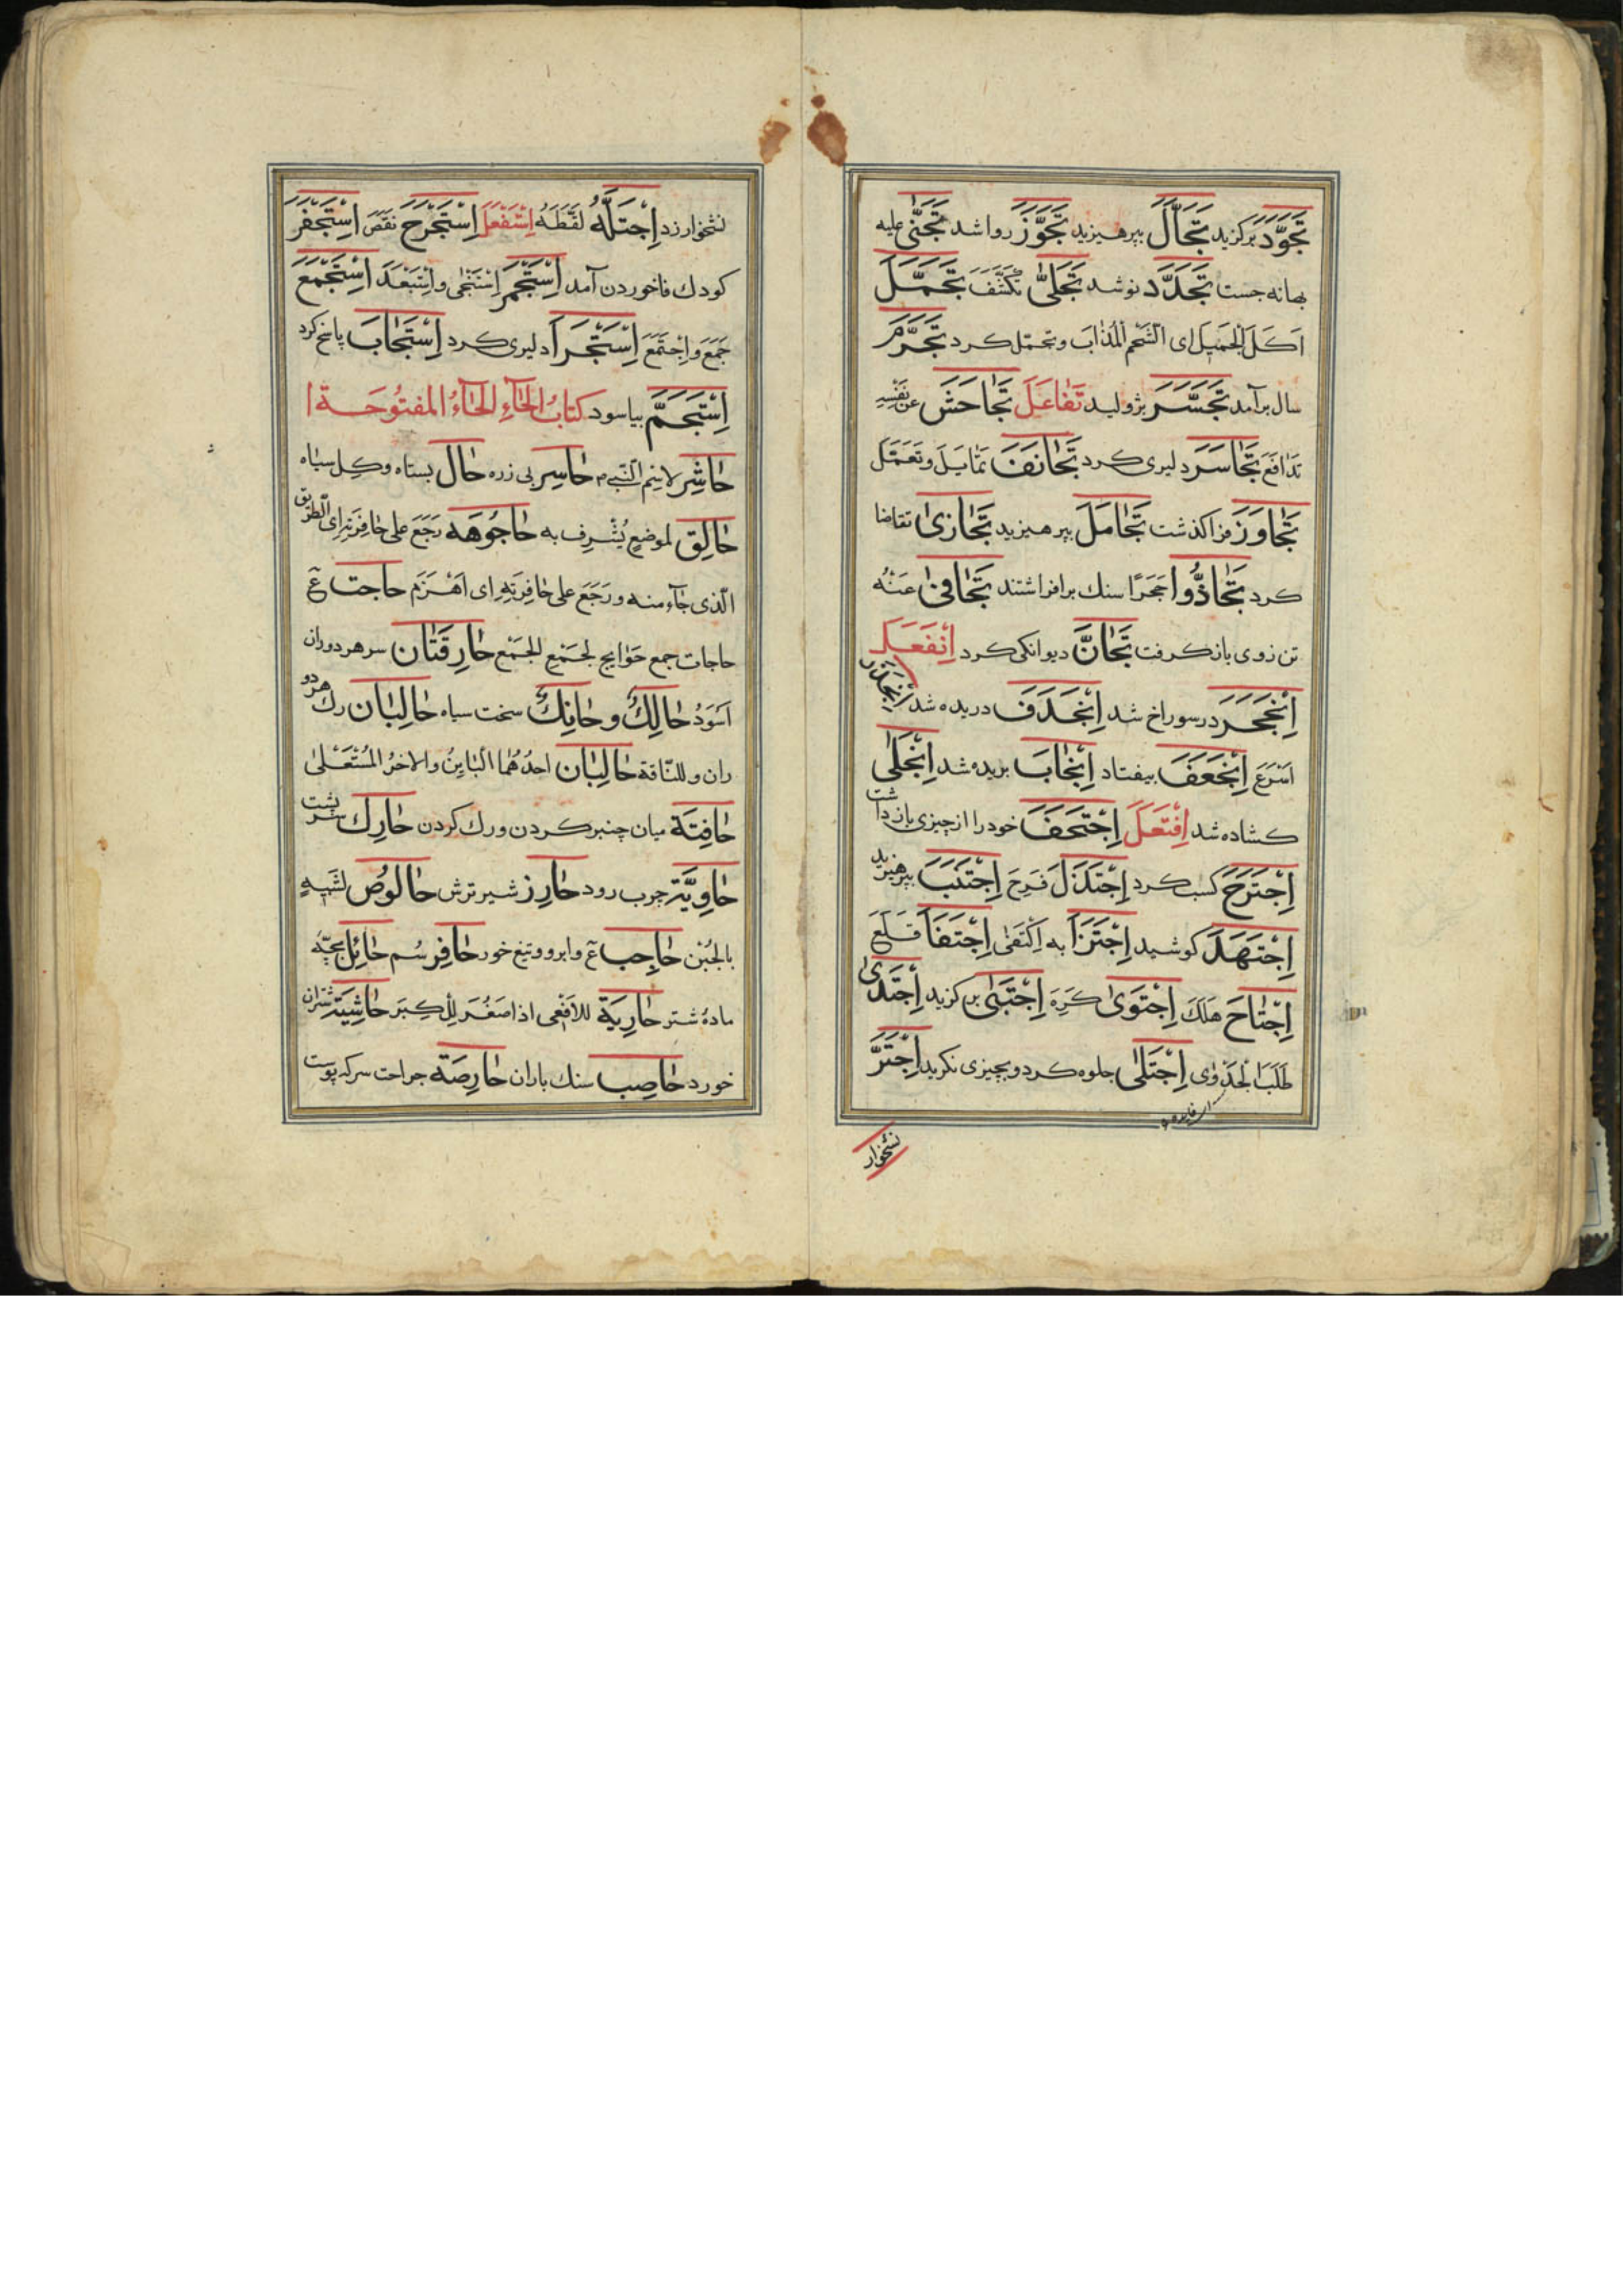 تَجَوَّدَ برکزید تَجَالَّ بپرهیزید تَجَوَّزَ روا شد تَجَنّٰی علیه
بهانه جست تَجَدَّدَ نو شد تَجَلّٰی تَکَشَّفَ تَجَمَّلَ
اَکَلَ الجَمیلَ ای الشَّحْمَ المُذَابَ وتحمّل کرد تَجَرَّمَ
سال برآمد تَجَسَّرَ بژولید تَفَاعَلَ تَجَاحَشَ عن نَفْسِهِ
تَدَافَعَ تَجَاسَرَ دلیری کرد تَجَانَفَ تَمَایَلَ وتَعَمَّلَ
تَجَاوَزَ فرا کذشت تَجَامَلَ بپرهیزید تَجَازیٰ تقاضا
کرد تَجَاذُّوا حَجَرًا سنك برافراشتند تَجَافیٰ عَنْهُ
تن زوی باز کرفت تَجَانَّ دیوانکی کرد اِنْفَعَلَ
اِنْجَحَرَ در سوراخ شد اِنْجَدَفَ دریده شد
اَسْرَعَ اِنْجَعَفَ بیفتاد اِنْجَابَ بریده شد اِنْجَلیٰ
کشاده شد اِفْتَعَلَ اِجْتَحَفَ خود را از چیزی باز داشت
اِجْتَرَحَ کسب کرد اِجْتَذَلَ فَرِحَ اِجْتَنَبَ بپرهیزید
اِجْتَهَدَ کوشید اِجْتَزَأَ به اِکْتَفیٰ اِجْتَفَأَ قَلَعَ
اِجْتَاحَ هَلَكَ اِجْتَوَیٰ کَرِهَ اِجْتَبَیٰ برکزید اِجْتَدیٰ
طَلَبَ الجَدْوٰی اِجْتَلٰی جلوه کرد و بچیزی نکرید اِجْتَرَّ
نشخوار
نشخوار زد اِجْتَلَّهُ لَقَطَهُ اِسْتَفْعَلَ اِسْتَجْرَحَ نَقَصَ اِسْتَجْفَرَ
کودك فا خوردن آمد اِسْتَجْمَرَ اِسْتَنْجٰی و اِسْتَبْعَدَ اِسْتَجْمَعَ
جَمَعَ و اِجْتَمَعَ اِسْتَجْرَأَ دلیری کرد اِسْتَجَابَ پاسخ کرد
اِسْتَجَمَّ بیاسود کتابُ الحَاءِ الحَاءُ المفتُوحَة
حَاشِر لاسم النّبی م حَاسِر بی زره حَال بستاه وکل سیاه
حَالِق لموضعٍ یُشْرِف به حَاجُوهَه رَجَعَ علی حَافِرَتِهِ ای الطریق
الّذی جَآءَ منه ورَجَعَ علی حَافِرَتِهِ ای اَهْزَم حاجت ع
حاجات جمع حَوَایج لجَمْعِ الجَمْع حَارِقَتَان سر هر دو ران
اَسْوَدُ حَالِكٌ و حَانِكٌ سخت سیاه حَالِبَان رك هر دو
ران و للنّاقة حَالِبَان احدُهُما البَایِنُ والاخرُ المُسْتَعْلیٰ
حَافِیَة میان چنبر کردن ورك کردن حَارِك سر پشت
حَاوِیَّة چرب رود حَازِر شیر ترش حَالوُص لشَبِیهٍ
بالجُبْن حَاجِب ع و ابرو و تیغ خور حَافِر سُم حَائِل بچّه
ماده شتر حَارِیَة للاَفْعی اذا صَغُرَ للکِبَر حَاشِیَة شتران
خورد حَاصِب سنك باران حَارِصَة جراحت سر که پوست